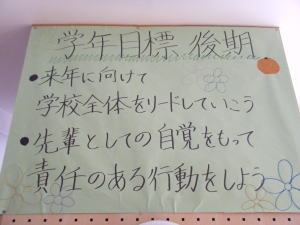 学年目標 後期
●来年に向けて
学校全体をリードしていこう
●先輩としての自覚をもって
責任のある行動をしよう